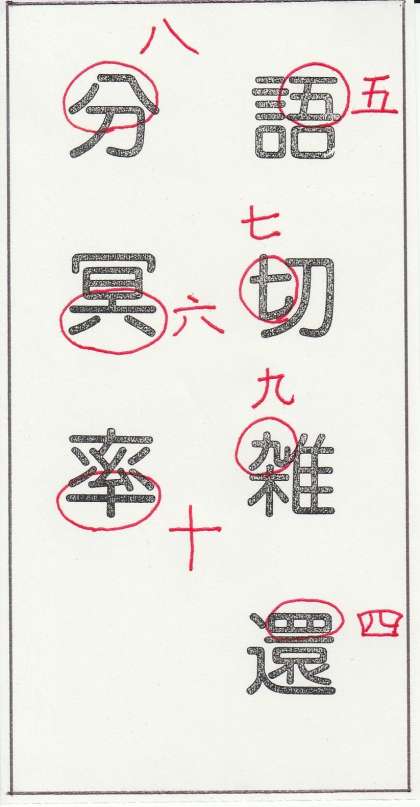 語 五
七
切
九
雑
還 四
八
分
冥 六
率
十